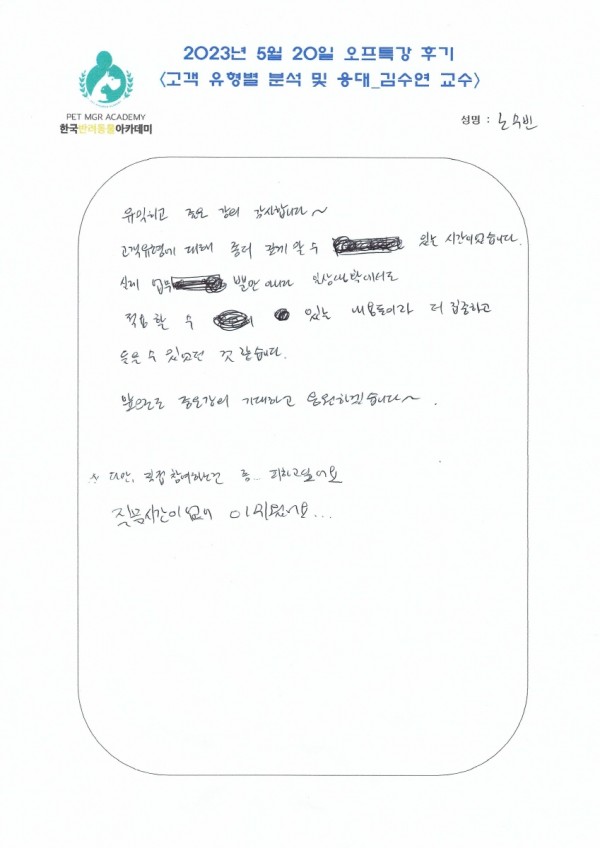 2023년 5월 20일 오프특강 후기
<고객 유형별 분석 및 응대_김수연 교수>
PET MGR ACADEMY
한국반려동물아카데미
성명 : 노수빈
유익하고 좋은 강의 감사합니다~
고객유형에 대해 좀더 알 수 있는 시간이었습니다.
실제 업무 뿐만 아니라 일상생활에서도
적용 할 수 있는 내용들이라 더 집중하고
들을 수 있었던 것 같습니다.
앞으로도 좋은강의 기대하고 응원하겠습니다~.
다만, 직접 참여하는건 좀.. 피하고싶어요
질문시간이 없어 아쉬웠어요...